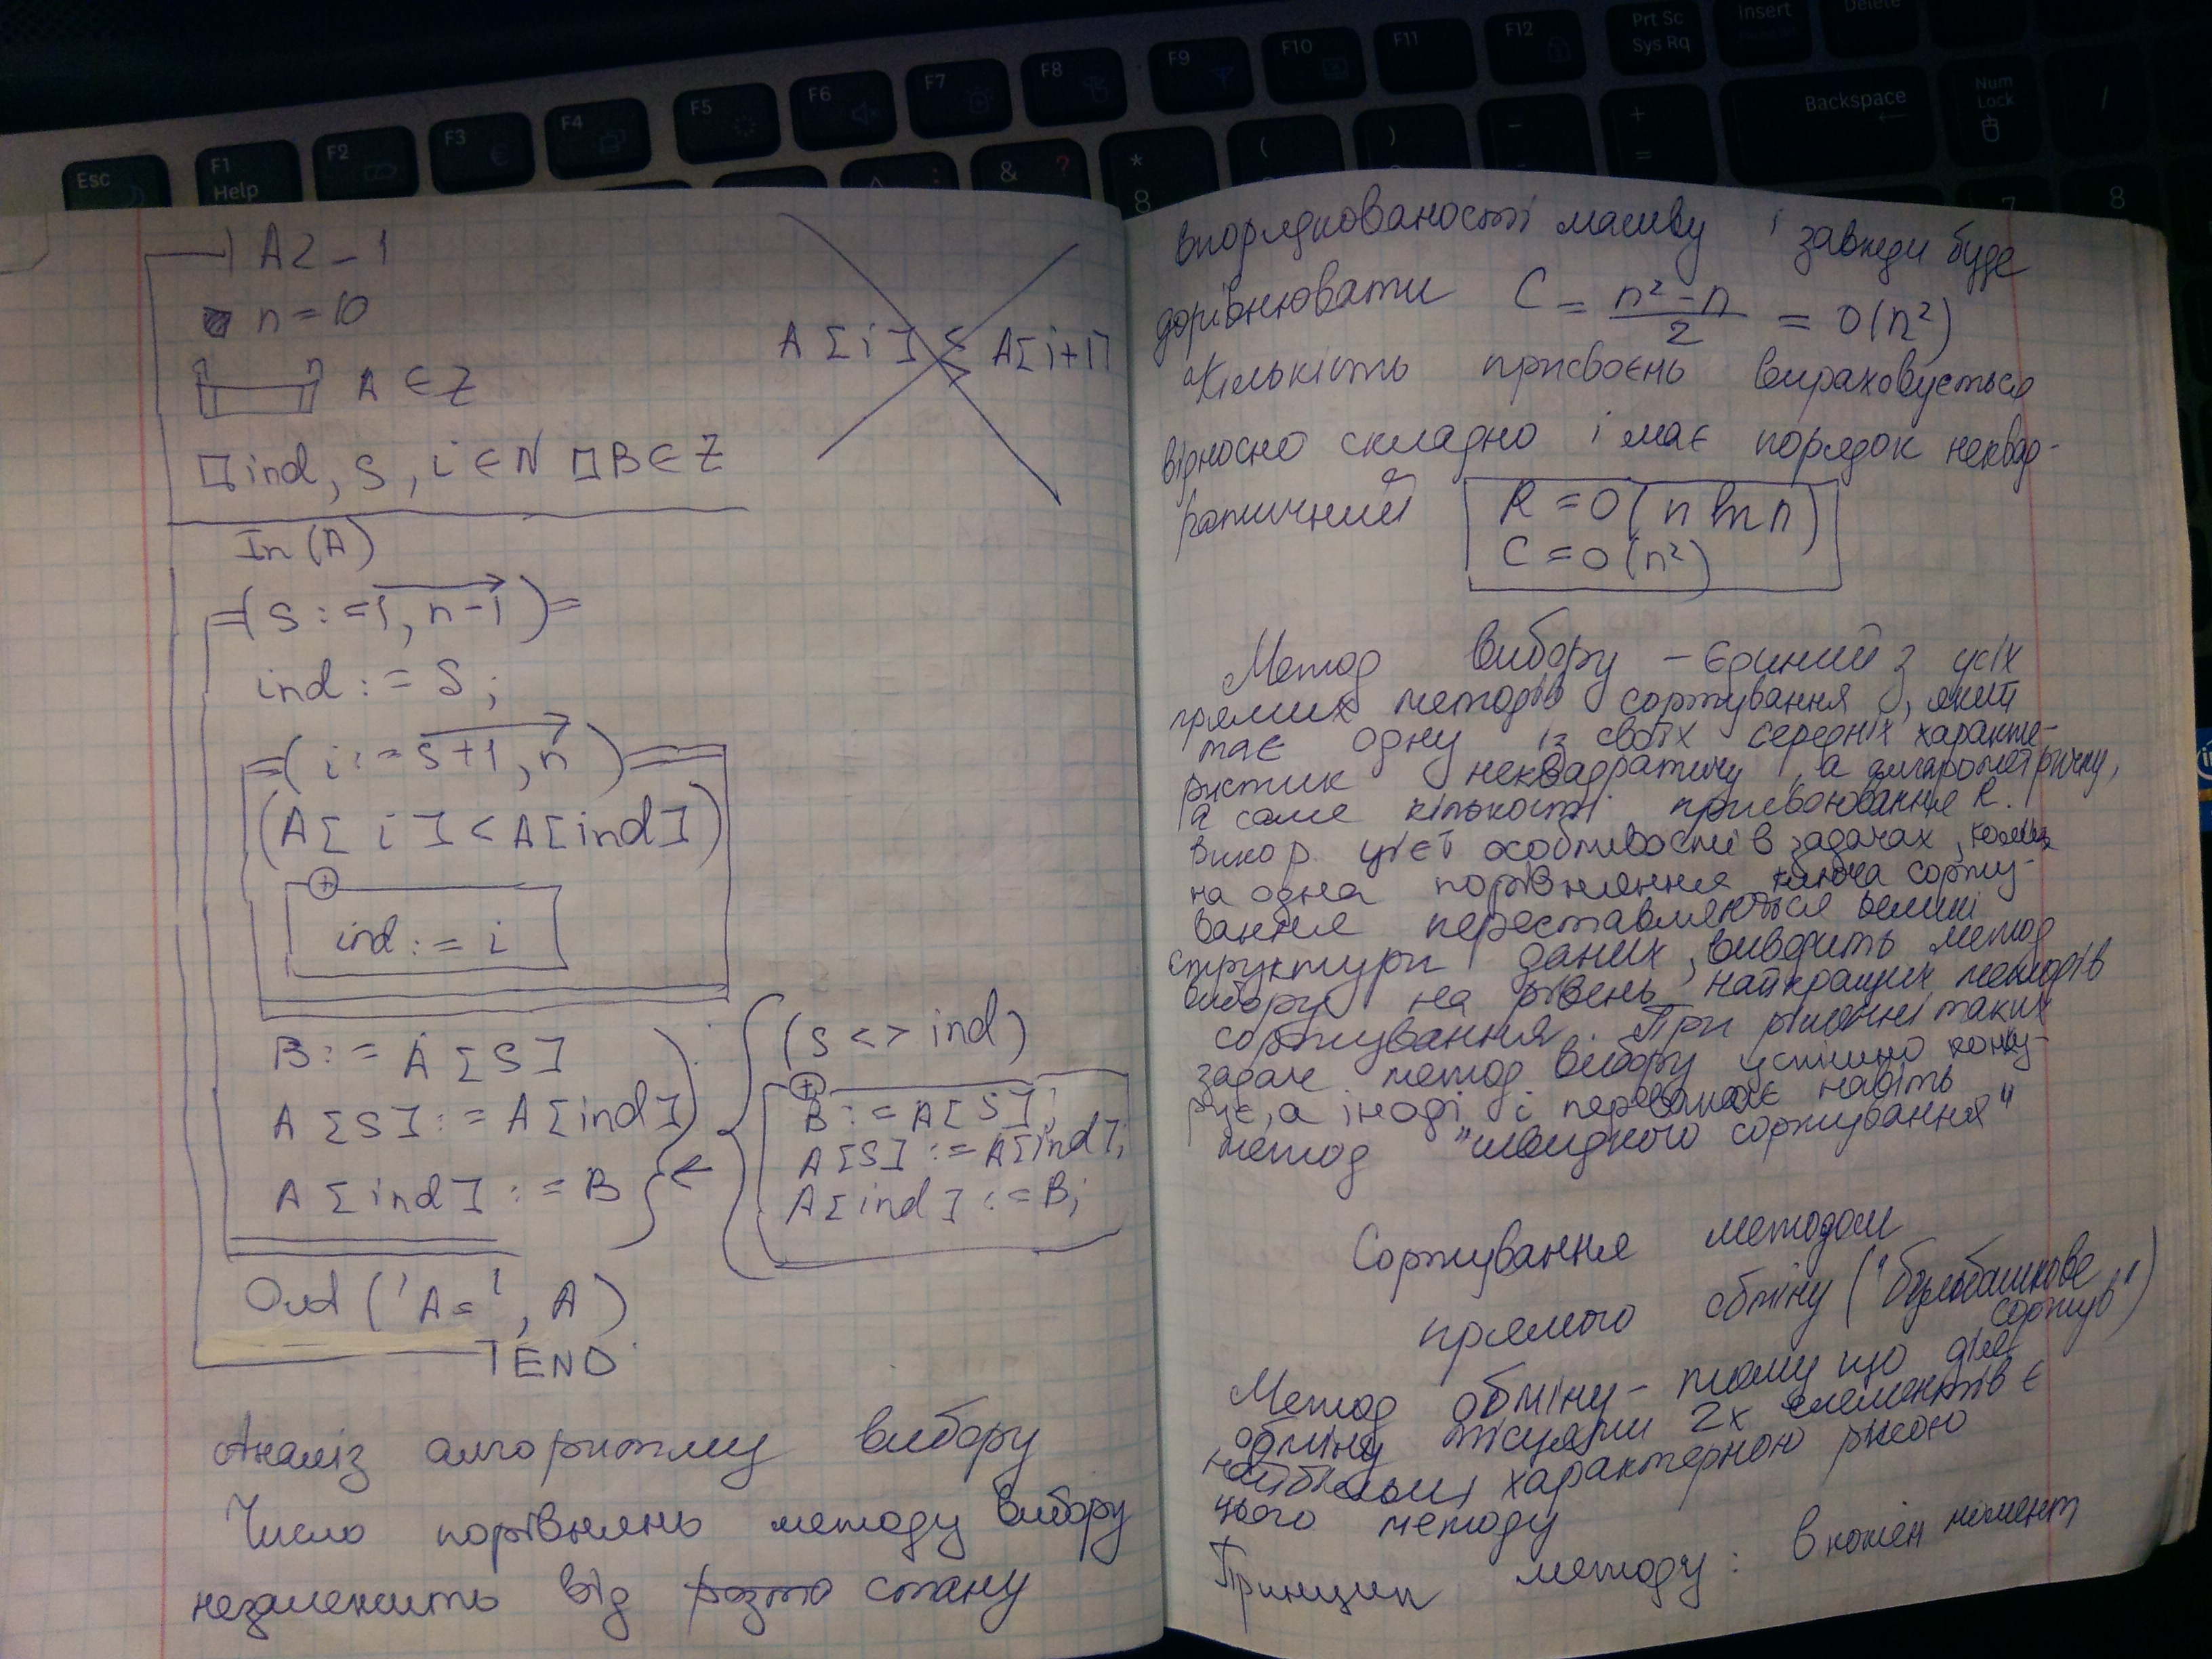 Esc
F1
Help
F2
F3
F4
F5
F6
F7
F8
F9
F10
F11
F12
Prt Sc
Sys Rq
Insert
Delete
&
?
*
8
(
)
+
=
Backspace
Num
Lock
/
7
8
A2-1
n=10
n
A ∈ Z
ind, S, i ∈ N □ B ∈ Z
In (A)
(S := 1, n-1)
ind := S;
(i := S+1, n)
(A[i] < A[ind])
+
ind := i
B := A[S]
A[S] := A[ind]
A[ind] := B
Out ('A=', A)
END
A[i] ≤ A[i+1]
(S <> ind)
+
B := A[S];
A[S] := A[ind];
A[ind] := B;
Аналіз алгоритму вибору
Число порівнянь методу вибору
незалежить від стану
впорядкованості масиву і завжди буде
дорівнювати C = n²-n / 2 = O(n²)
Кількість присвоєнь вираховується
відносно складно і має порядок неквад-
ратичний
R = O(n ln n)
C = O(n²)
Метод вибору - єдиний з усіх
прямих методів сортування, який
має одну із своїх середніх характе-
ристик неквадратичну, а
а саме кількості присвоювання R.
Викор. цієї особливості в задачах, коли
на одна порівняння ключа сорту-
вання переставляються великі
структури даних, виводить метод
вибору на рівень найкращих методів
сортування. При рішенні таких
задач метод вибору успішно конку-
рує, а іноді і переважає навіть
метод "швидкого сортування"
Сортування методом
прямого обміну ("бульбашкове
сортув")
Метод обміну - тому що для
обміну місцями 2х елементів є
найбільш характерною рисою
цього методу
Принцип методу: в кожен момент